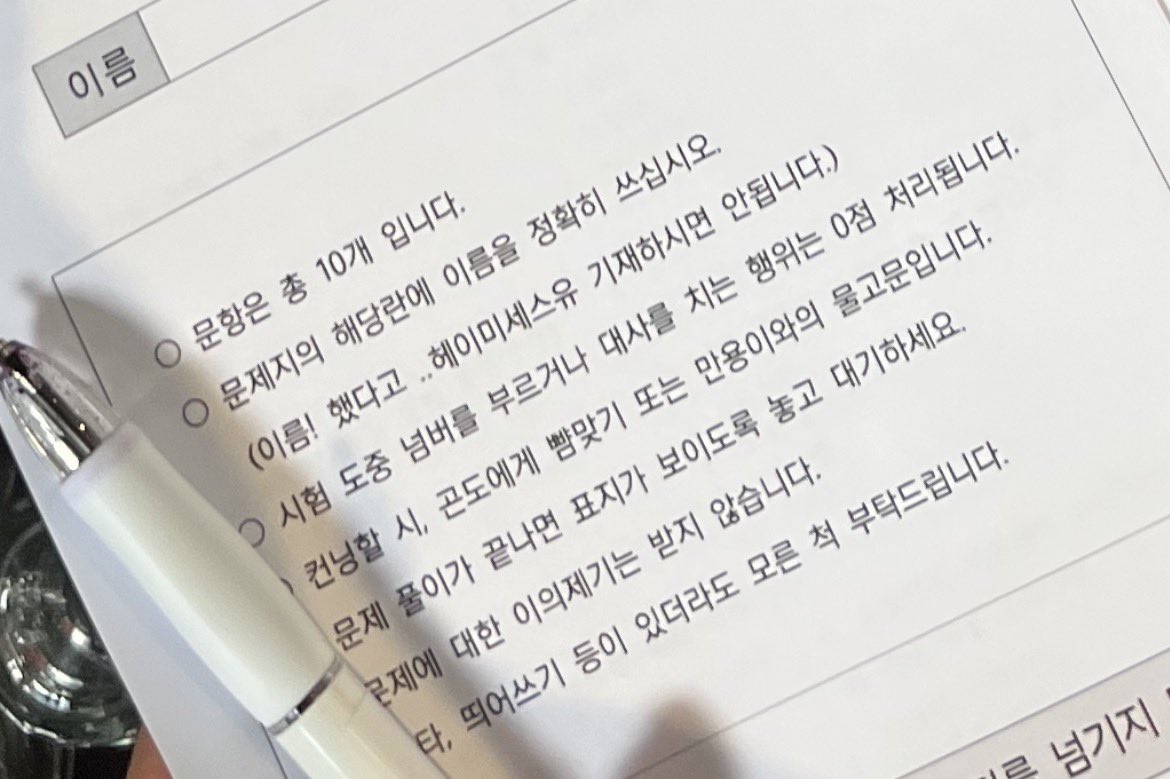 이름
○ 문항은 총 10개 입니다.
○ 문제지의 해당란에 이름을 정확히 쓰십시오.
(이름! 했다고 ..헤이미세스유 기재하시면 안됩니다.)
○ 시험 도중 넘버를 부르거나 대사를 치는 행위는 0점 처리됩니다.
컨닝할 시, 곤도에게 뺨맞기 또는 만용이와의 물고문입니다.
문제 풀이가 끝나면 표지가 보이도록 놓고 대기하세요.
문제에 대한 이의제기는 받지 않습니다.
타, 띄어쓰기 등이 있더라도 모른 척 부탁드립니다.
넘기지